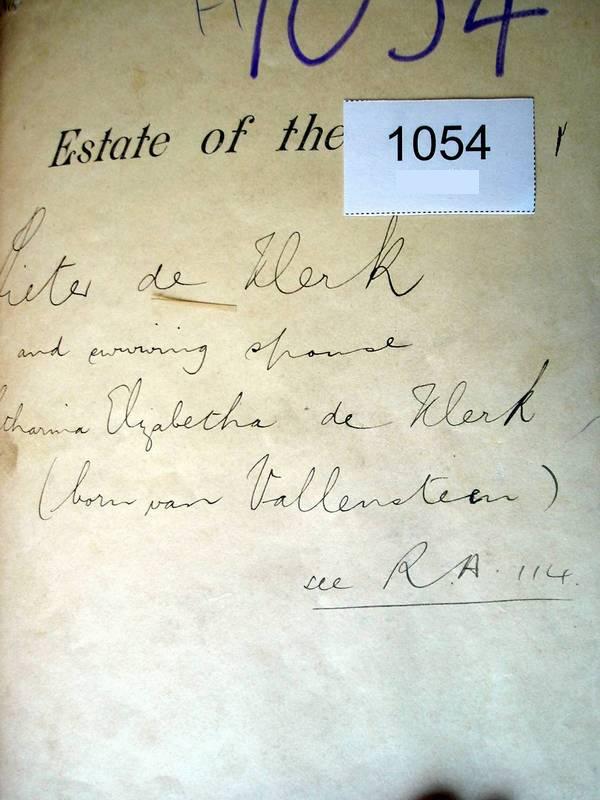 1054
Estate of the 1054
Pieter de Klerk
and surviving spouse
Catharina Elizabetha de Klerk
(born van Vallensteen)
see R.A. 114.